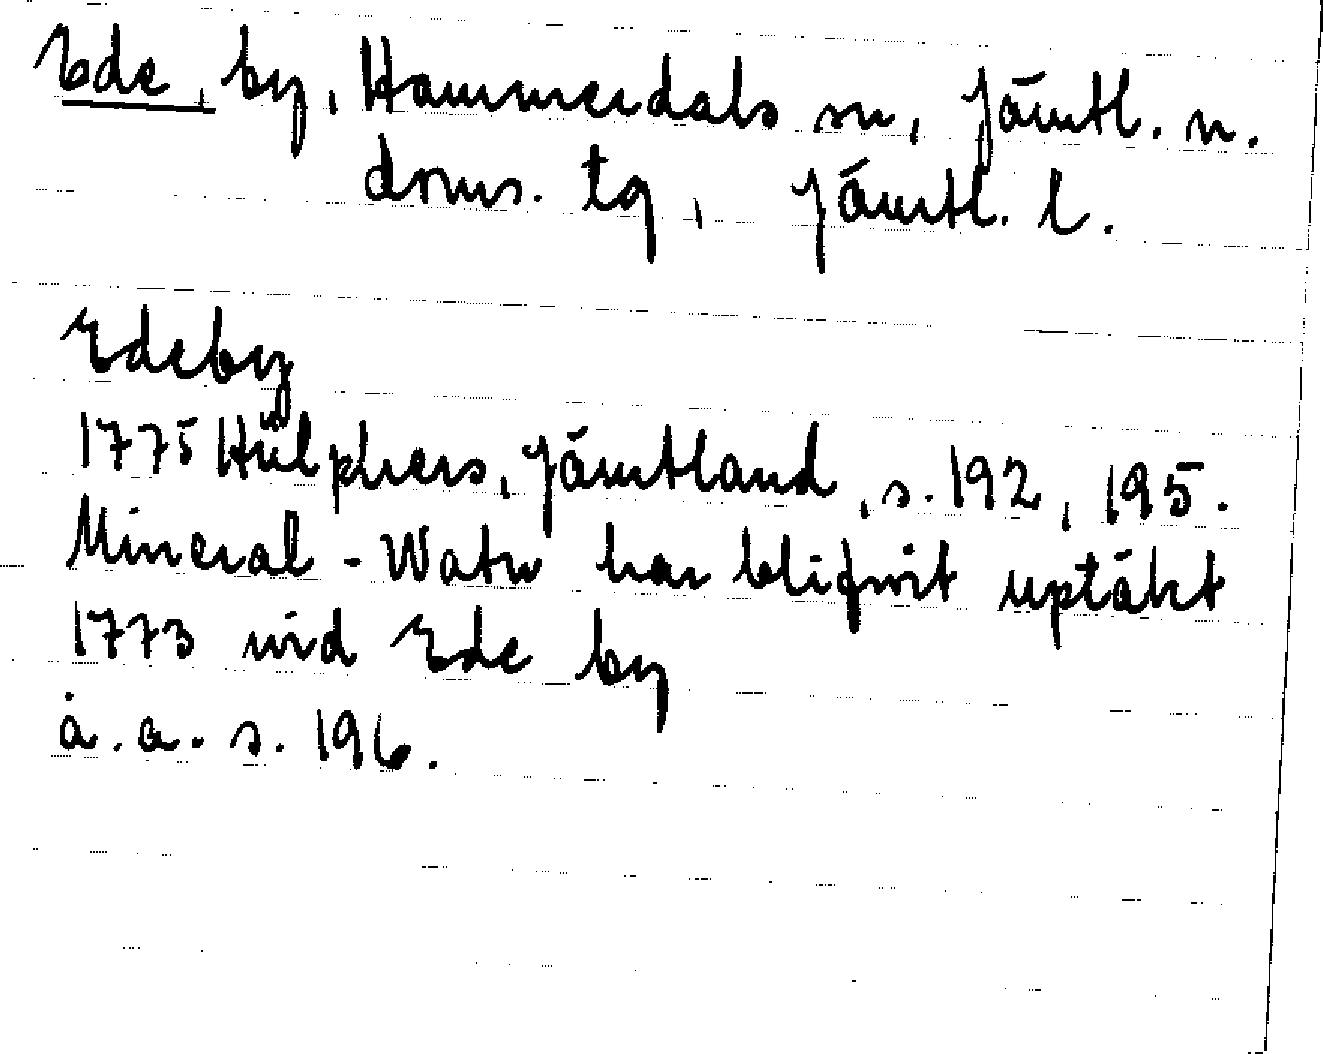 Ede, by, Hammerdals sn, Jämtl. n.
doms. tg, Jämtl. l.
Edeby
1775 Hülphers, Jämtland, s. 192, 195.
Mineral-Watn har blifwit uptäkt
1773 wid Ede by
a. a. s. 196.